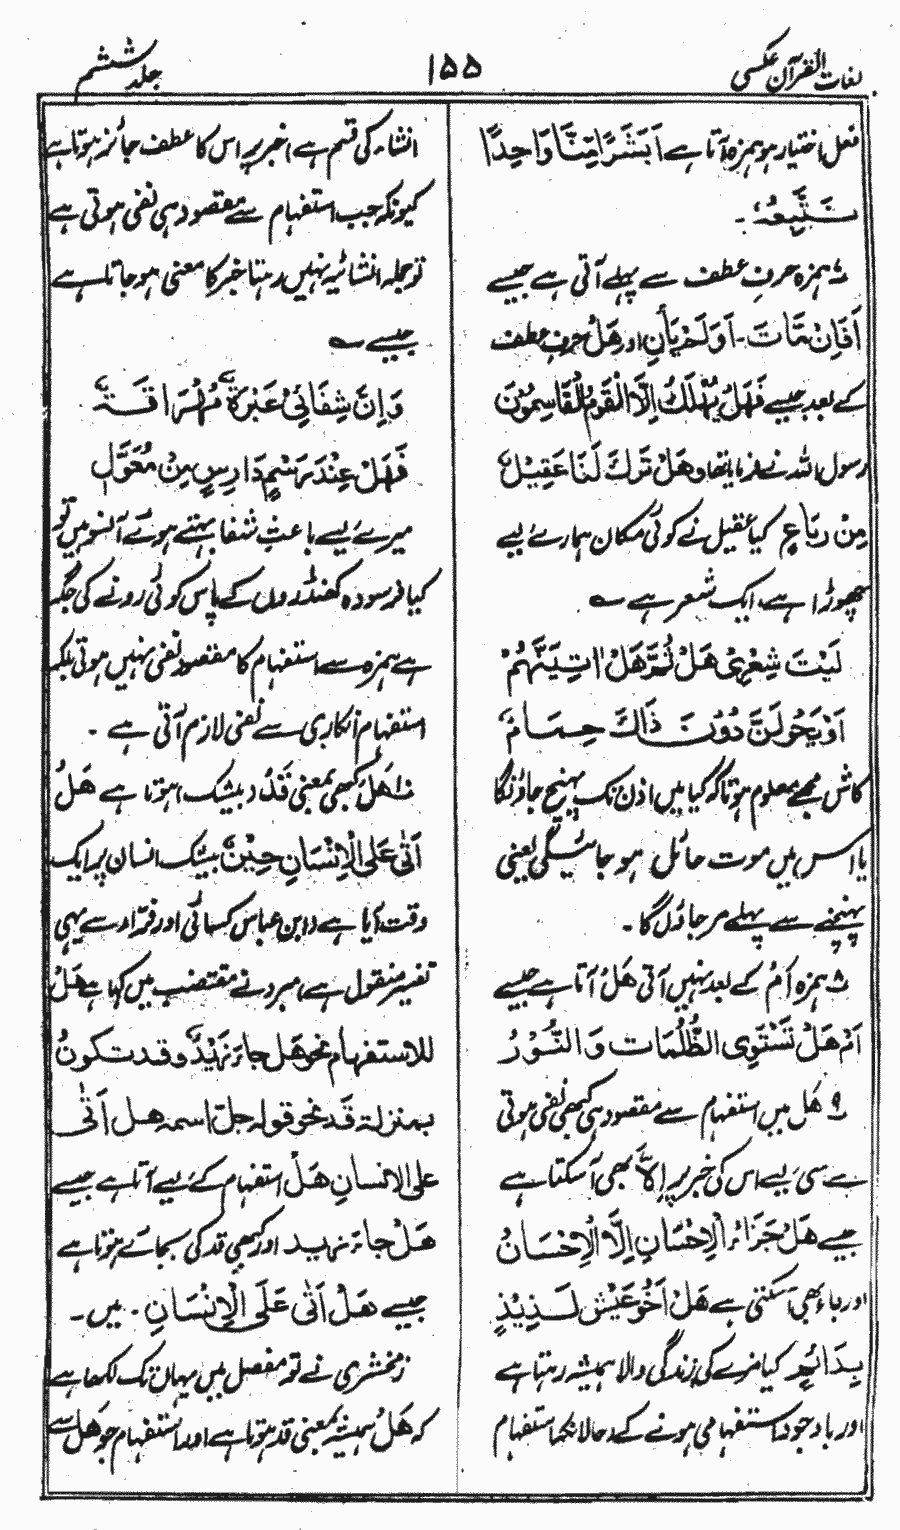 لغات القرآن عکسی
۱۵۵
جلد ششم
فعل اختیار ہو ہمزہ آتا ہے اَبَشَرًا مِّنَّا وَاحِدًا
نَتَّبِعُهٗ ۔
ہمزہ حرفِ عطف سے پہلے آتی ہے جیسے
اَفَاِنْ مَّاتَ ۔ اَوَلَمْ یَأْنِ اور هَلْ حرف عطف
کے بعد جیسے فَهَلْ یُهْلَكُ اِلَّا الْقَوْمُ الْفَاسِقُوْنَ
رسول اللہ نے فرمایا تھا وهَلْ تَرَكَ لَنَا عَقِيْلٌ
مِنْ رِبَاعٍ کیا عقیل نے کوئی مکان ہمارے لیے
چھوڑا ہے، ایک شعر ہے ؎
لَيْتَ شِعْرِيْ هَلْ ثُمَّ هَلْ اٰتِيَنَّهُمْ
اَوْ يَحُوْلَنَّ دُوْنَ ذَاكَ حِمَامٌ
کاش مجھے معلوم ہوتا کہ کیا میں اذن تک پہنچ جاؤنگا
یا اس میں موت حائل ہو جائیگی یعنی
پہنچنے سے پہلے مر جاؤں گا ۔
ہمزہ اَمْ کے بعد نہیں آتی هَلْ آتا ہے جیسے
اَمْ هَلْ تَسْتَوِى الظُّلُمَاتُ وَالنُّوْرُ
هَل میں استفہام سے مقصود ہی کبھی نفی ہوتی
ہے سی لیے اس کی خبر پر اِلاَّ بھی آ سکتا ہے
جیسے هَلْ جَزَاءُ الْاِحْسَانِ اِلَّا الْاِحْسَانُ
اور باء بھی آسکتی ہے هَلْ اَخُوْ عَيْشٍ لَذِيْذٍ
بِدَائِمٍ کیا مزے کی زندگی والا ہمیشہ رہتا ہے
اور باوجود استفہامی ہونے کے، حالانکہ استفہام
انشاء کی قسم ہے اخبر پر اس کا عطف جائز ہوتا ہے
کیونکہ جب استفہام سے مقصود ہی نفی ہوتی ہے
تو جملہ انشائیہ نہیں رہتا خبر کا معنی ہو جاتا ہے
جیسے ؎
وَاِنَّ شِفَائِيْ عَبْرَةٌ مُهْرَاقَةٌ
فَهَلْ عِنْدَ رَسْمٍ دَارِسٍ مِنْ مُعَوَّلِ
میرے لیے باعثِ شفا بہتے ہوئے آنسو ہیں تو
کیا فرسودہ کھنڈروں کے پاس کوئی رونے کی جگہ
ہے ہمزہ سے استفہام کا مقصود نفی نہیں ہوتی بلکہ
استفہام انکاری سے نفی لازم آتی ہے ۔
هَلْ کبھی بمعنی قَدْ (بیشک) ہوتا ہے هَلْ
اَتٰى عَلَى الْاِنْسَانِ حِيْنٌ بیشک انسان پر ایک
وقت آیا ہے (ابن عباس کسائی اور فراء سے یہی
تفسیر منقول ہے، مبرد نے مقتضب میں کہا ہے هَلْ
للاستفهام نحو هَل جاءَ زَيْدٌ وقد تكونُ
بمنزلة قَد نحو قوله جلّ اسمه هل اَتٰى
على الانسانِ هَلْ استفہام کے لیے آتا ہے جیسے
هَلْ جاءَ زيد اور کبھی قد کی بجائے ہوتا ہے
جیسے هَلْ اَتٰى عَلَى الْاِنْسَانِ ۔ میں ۔
زمخشری نے تو مفصل میں یہاں تک لکھا ہے
کہ هَلْ ہمیشہ بمعنی قد ہوتا ہے اور استفہام جو هَلْ سے